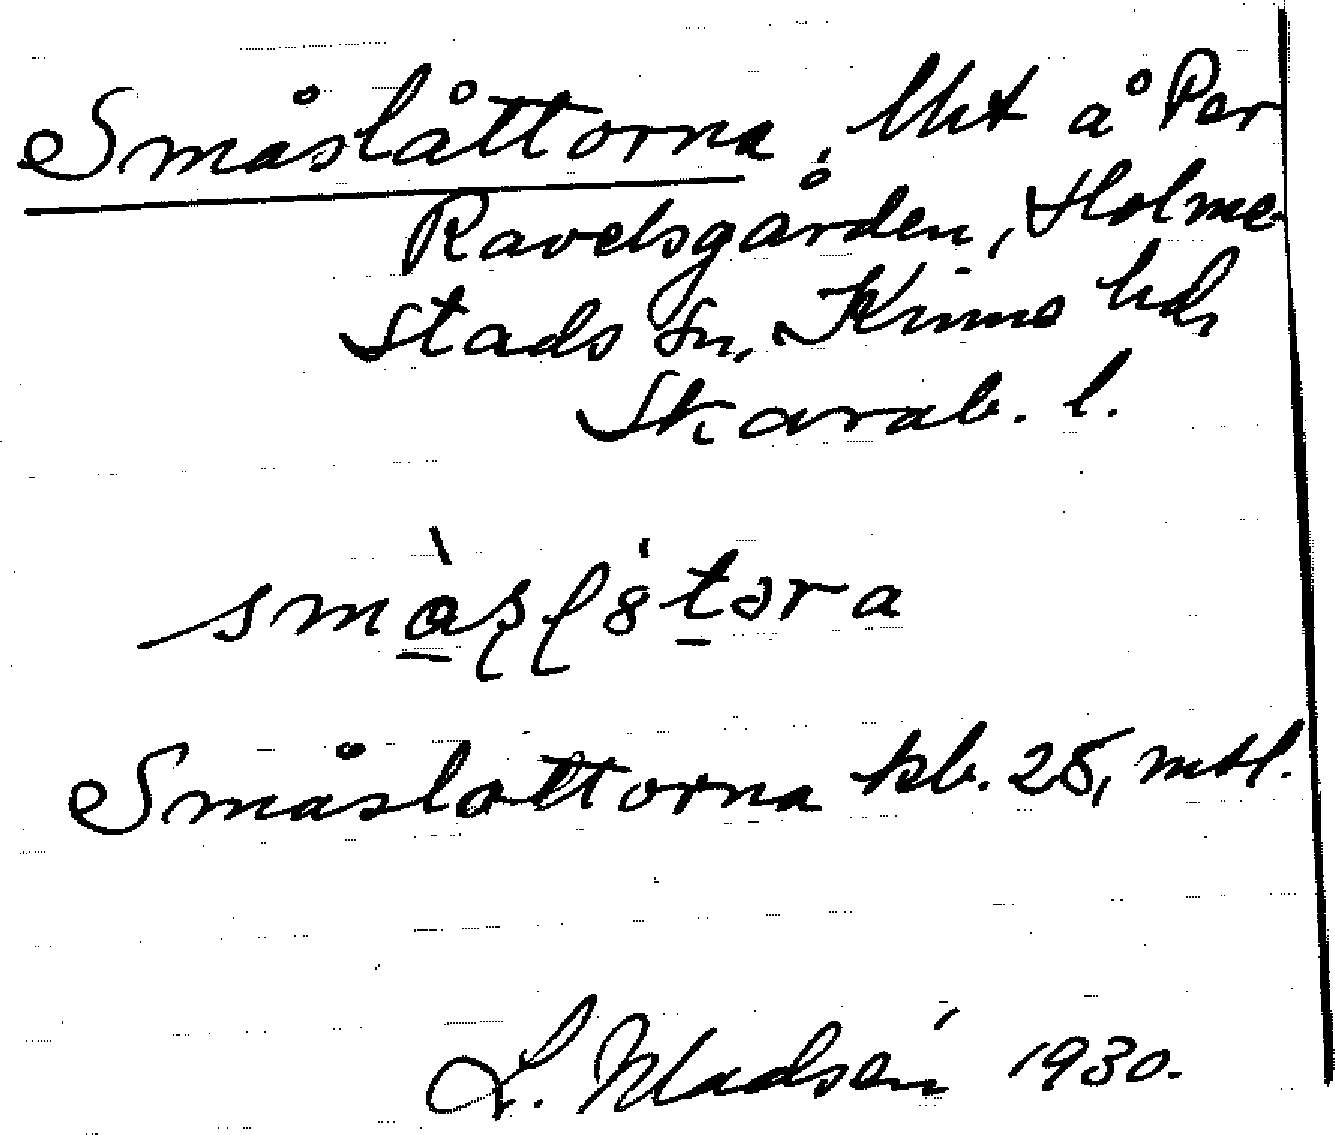 Småslåttorna, Mt å Per
Ravelsgården, Holme-
stads sn, Kinne hd,
Skarab. l.
Småslottorna kb. 25, mtl.
L. Madsén 1930.